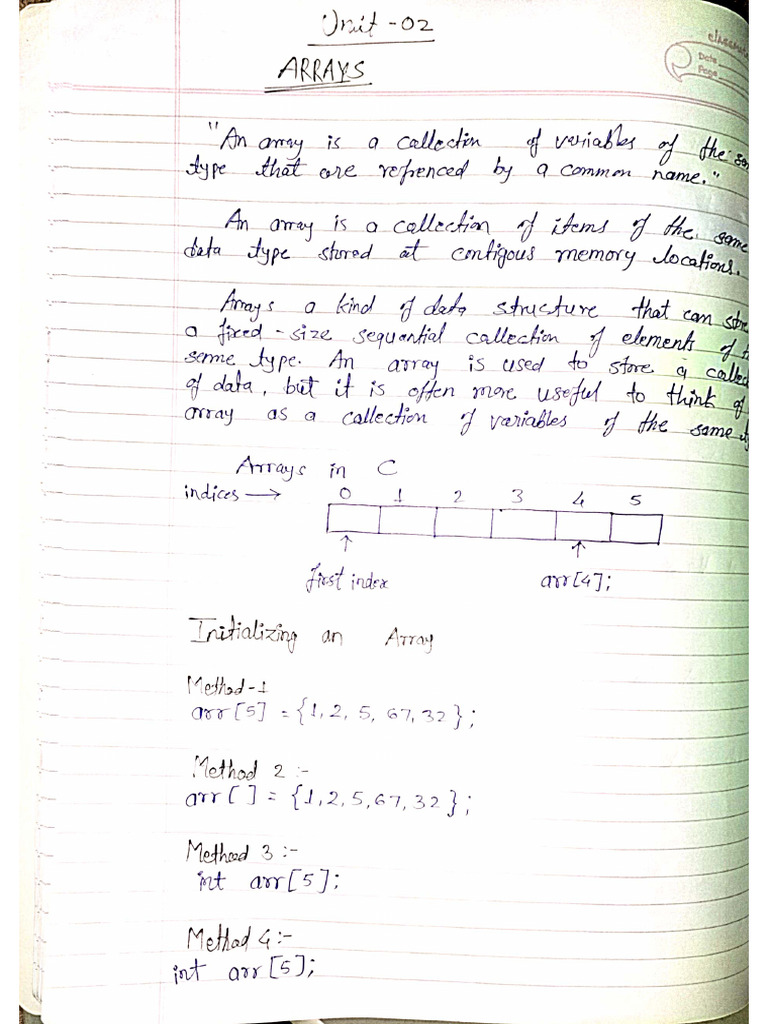 Unit -02
classmate
Date
Page
ARRAYS
"An array is a collection of variables of the
type that are refrenced by a common name."
An array is a collection of items of the same
data type stored at contigous memory locations.
Arrays a kind of data structure that can
a fixed-size sequential collection of elements of
same type. An array is used to store a
of data, but it is often more useful to think of
array as a collection of variables of the same
Arrays in C
indices → 0 1 2 3 4 5
first index arr[4];
Initializing an Array
Method-1
arr[5] = {1, 2, 5, 67, 32};
Method 2 :-
arr[ ] = {1,2,5,67,32};
Method 3 :-
int arr[5];
Method 4 :-
int arr[5];